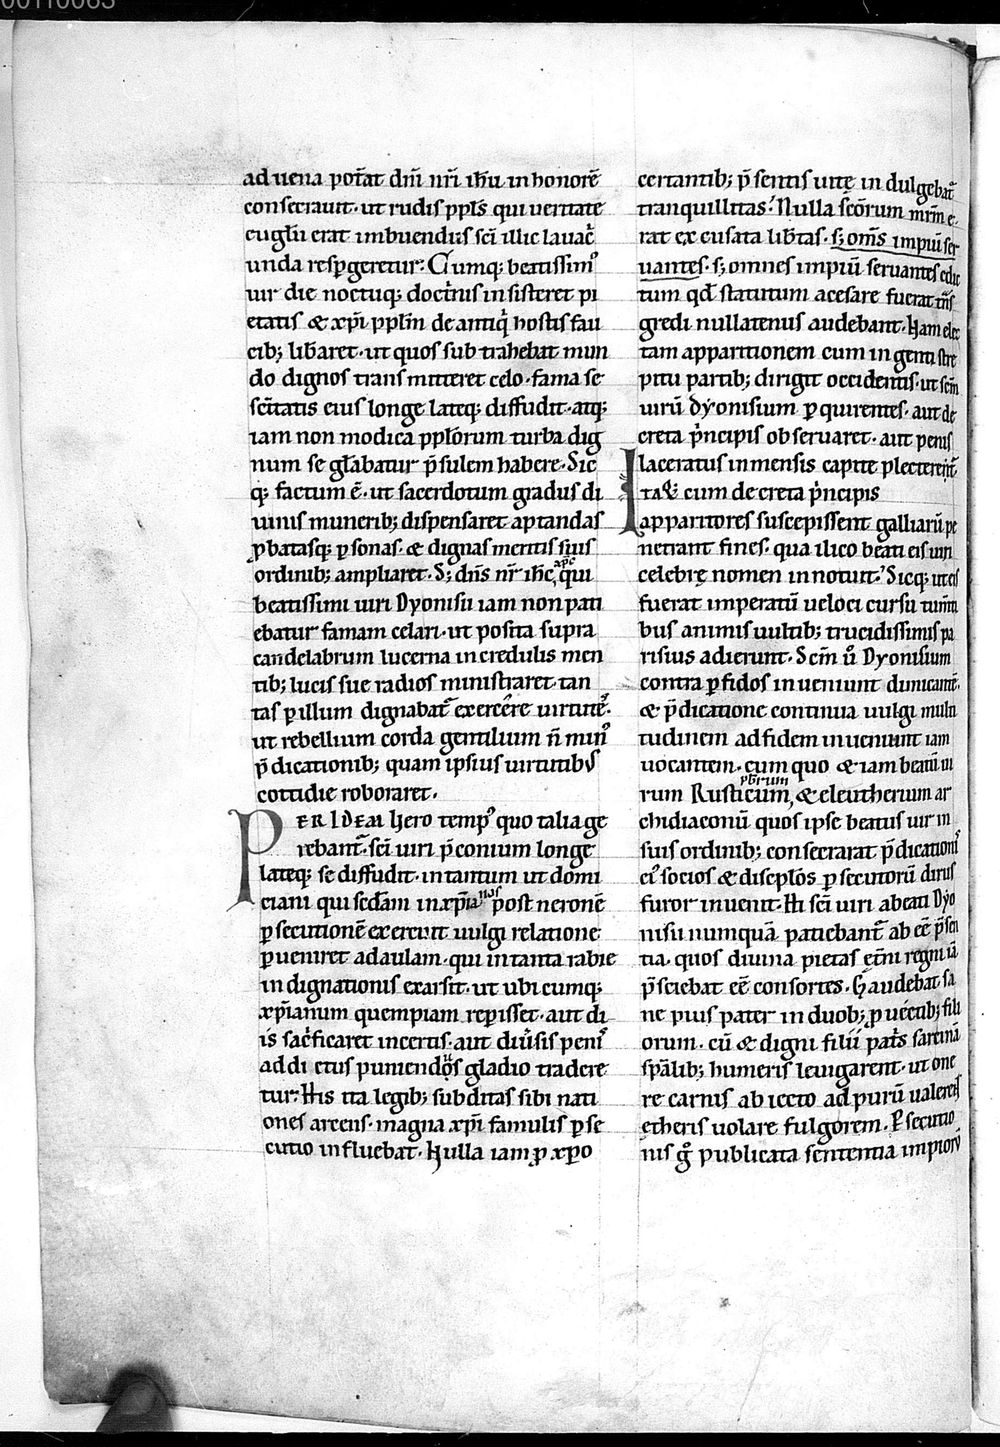 00110063
aduena potat̄ dn̄i nr̄i ih̄u in honorē
consecrauit· ut rudis ppl̄s qui ueritate
euglii erat imbuendus sc̄i illic lauac̄
unda respgeretur: Cumq; beatissim᷒
uir die noctuq; doct̄nis insisteret pi
etatis & xp̄i ppl̄m de antiq̄ hostis fau
cib; lib̄aret· ut quos sub trahebat mun
do dignos trans mitteret celo· fama se
sc̄itatis eius longe lateq; diffudit· atq;
iam non modica ppl̄orum turba dig
num se gl̄abatur p̄sulem habere· Sic
q; factum ē· ut sacerdotum gradus di
uinis munerib; dispensaret aptandas
ꝓbatasq; ꝑsonas· & dignas meritis suis
ordinib; ampliaret· S; dn̄s nr̄ ih̄c xp̄c, qui
beatissimi uiri Dyonisii iam non pati
ebatur famam celari· ut posita supra
candelabrum lucerna incredulis men
tib; lucis sue radios ministraret· tan
tas ꝑ illum dignabat᷑ exercere uirtutē·
ut rebellium corda gentilium n̄ min᷒
p̄dicationib; quam ipsius uirtutibs
cottidie roboraret·
PER IDEM uero temp᷒ quo talia ge
rebant᷑· sc̄i uiri p̄conium longe
lateq; se diffudit· in tantum ut domi
ciani qui sc̄dam in xp̄ianos post neronē
ꝑsecutionē exercuit uulgi relatione
ꝑueniret ad aulam· qui in tanta rabie
indignationis exarsit· ut ubicumq;
xp̄ianum quempiam repisset· aut di
is sac̄ficaret incertis· aut diūsis penis
addictus puniendos gladio tradere
tur: His ita legib; subditas sibi nati
ones arcens· magna xp̄i famulis ꝑse
cutio influebat· Nulla iam ꝓ xp̄o
certantib; p̄sentis uitę indulgebat᷑
tranquillitas: Nulla sc̄orum mr̄m e
rat excusata lib̄tas· s; om̄s impiū ser
uantes· s; omnes impiū seruantes edic
tum qd̄ statutum a cesare fuerat tn̄s
gredi nullatenus audebant· Nam elec
tam apparitionem cum ingenti stre
pitu partib; dirigit occidentis· ut sc̄m
uirū dyonisium ꝑquirentes· aut de
creta p̄ncipis obseruaret· aut penis
laceratus inmensis capite plecteretur
ITAQ; cum decreta p̄ncipis
apparitores suscepissent galliarū pe
netrant fines· qua ilico beati eis uiri
celebrę nomen innotuit: Sicq; ut eis
fuerat imperatū ueloci cursu tum̄ti
bus animis uultib; trucidissimis pa
risius adierunt· Sc̄m ū Dyonisium
contra ꝑfidos inueniunt dimicantē·
& p̄dicatione continua uulgi multi
tudinem ad fidem inueniunt iam
uocantem· cum quo & iam beatū ui
rum Rusticum pbr̄um, & eleutherium ar
chidiaconū quos ipse beatus uir in
suis ordinib; consecrarat p̄dicationi᷒
ei᷒ socios & discipl̄os ꝑsecutorū dirus
furor inuenit· Hi sc̄i uiri a beati Dyo
nisii numquā patiebant᷑ abeē p̄sen
tia· quos diuina pietas et̄ni regni iā
p̄sciebat eē consortes· Gaudebat sa
ne pius pater in duob; ꝓuectib; fili
orum· cū & digni filii pat̄s sarcinā
sp̄alib; humeris leuigarent· ut one
re carnis abiecto ad purū ualerent
etheris uolare fulgorem· Persecutio
nis g̊ publicata sententia impiorū